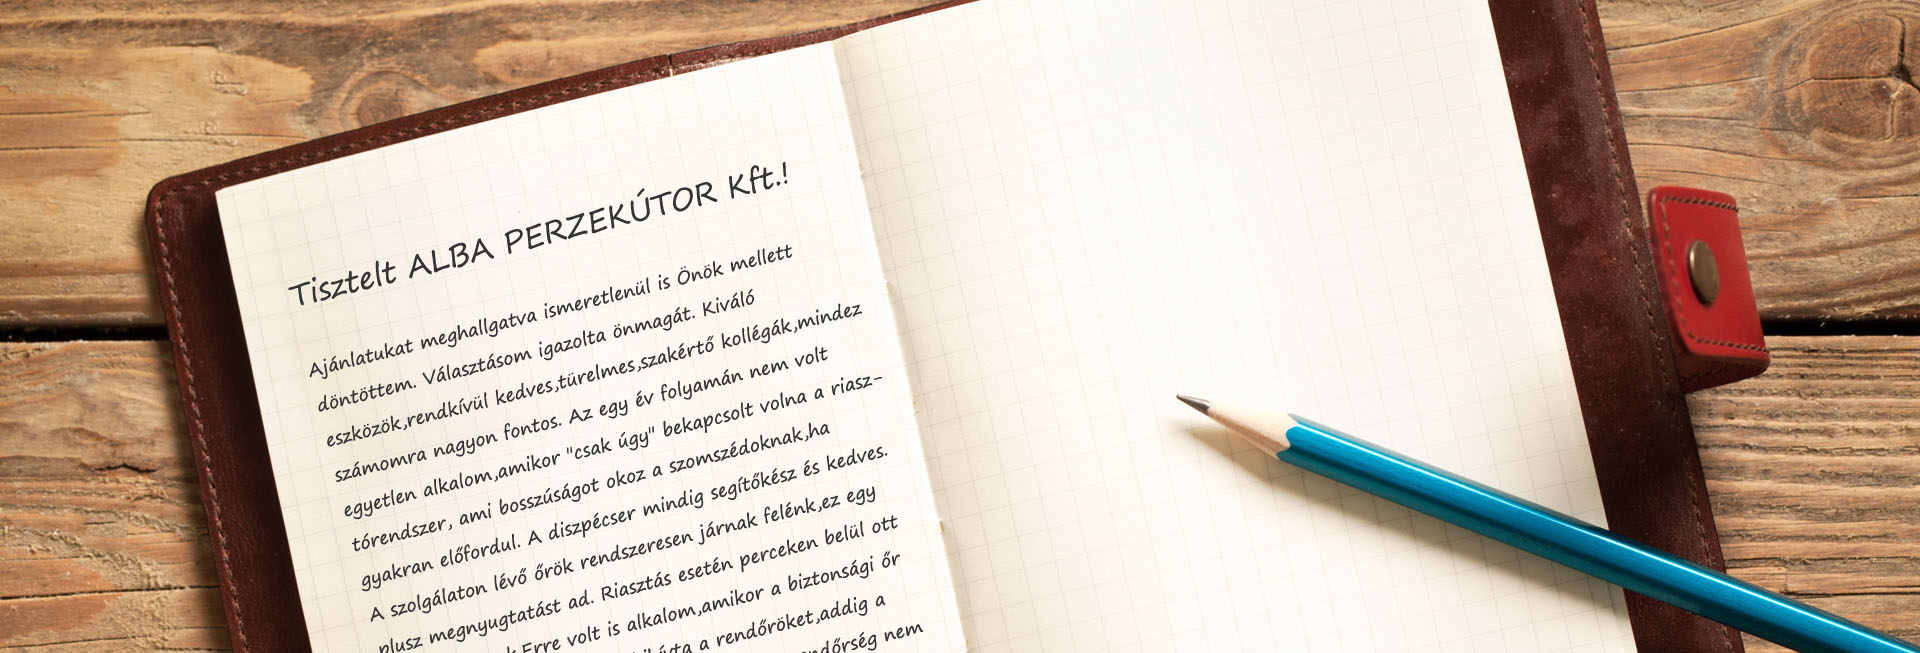 Tisztelt ALBA PERZEKÚTOR Kft.!
Ajánlatukat meghallgatva ismeretlenül is Önök mellett
döntöttem. Választásom igazolta önmagát. Kiváló
eszközök,rendkívül kedves,türelmes,szakértő kollégák,mindez
számomra nagyon fontos. Az egy év folyamán nem volt
egyetlen alkalom,amikor "csak úgy" bekapcsolt volna a riasz-
tórendszer, ami bosszúságot okoz a szomszédoknak,ha
gyakran előfordul. A diszpécser mindig segítőkész és kedves.
A szolgálaton lévő őrök rendszeresen járnak felénk,ez egy
plusz megnyugtatást ad. Riasztás esetén perceken belül ott
Erre volt is alkalom,amikor a biztonsági őr
a rendőröket,addig a
nem